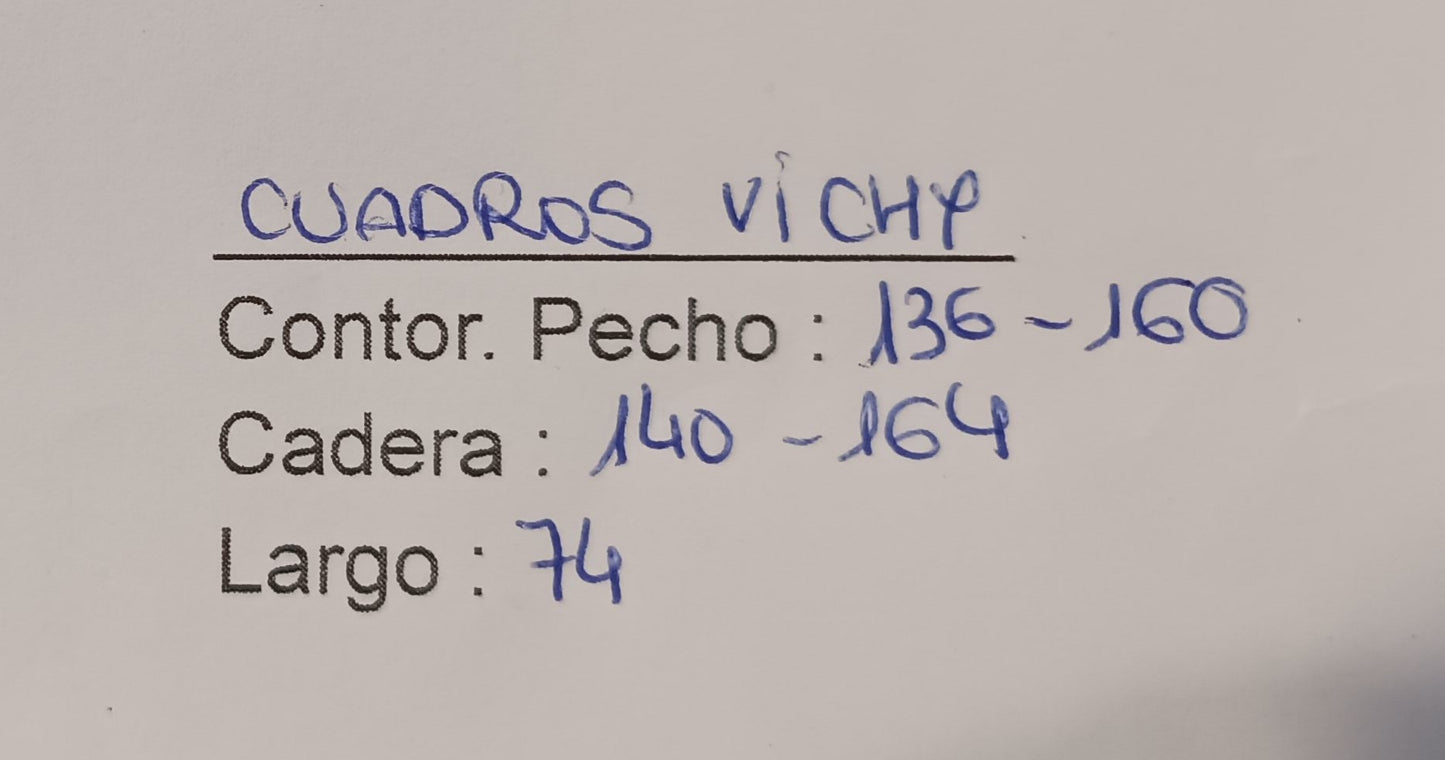 CUADROS VICHY
Contor. Pecho : 136 - 160
Cadera : 140 - 164
Largo : 74